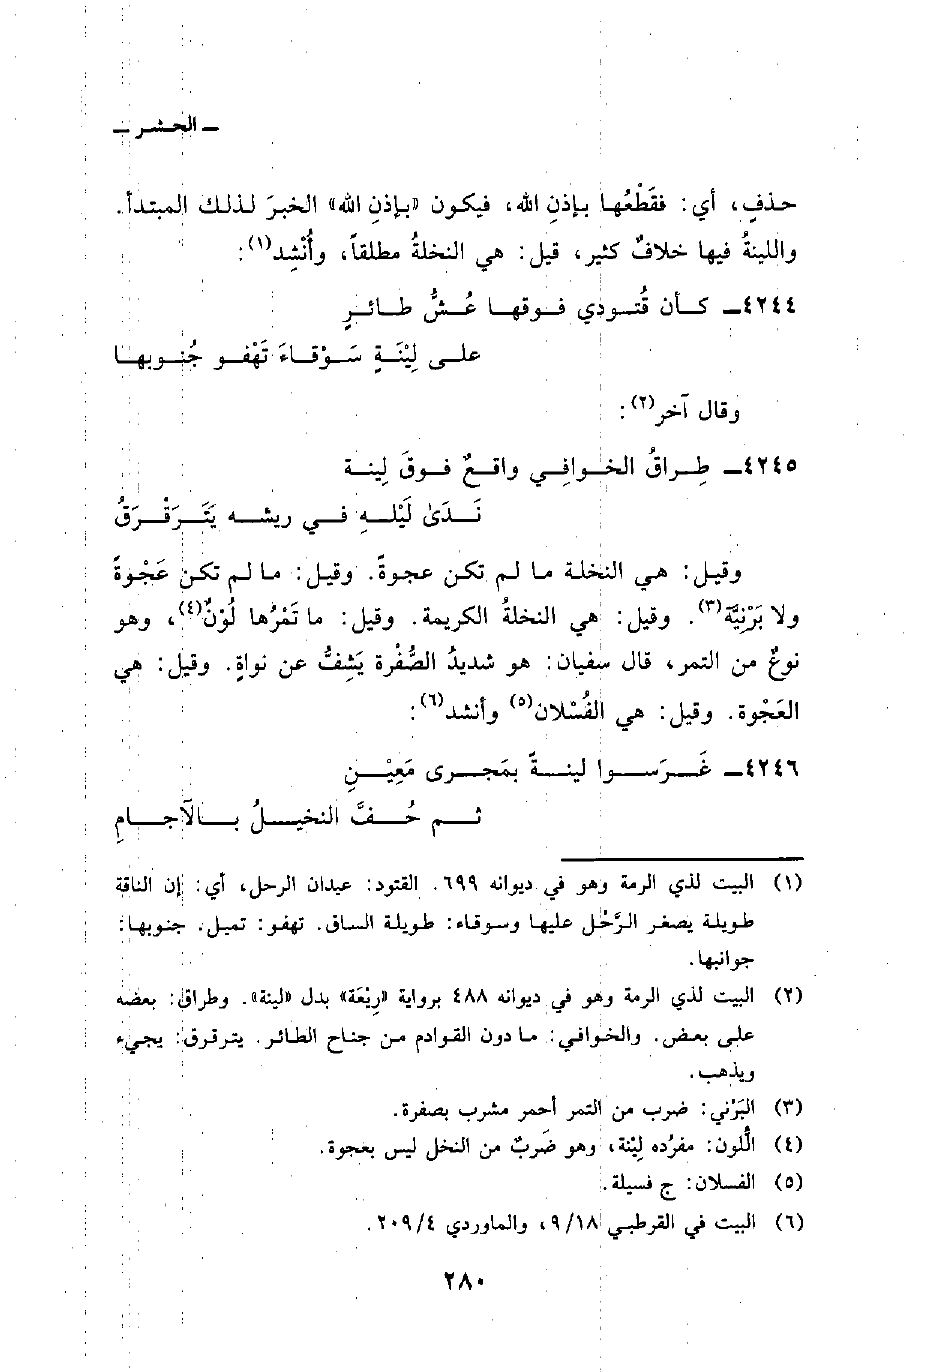 ـ الحشر ـ
حذفٍ، أي: فقَطْعُها بإذنِ الله، فيكون «بإذنِ الله» الخبرَ لذلك المبتدأ.
واللينةُ فيها خلافٌ كثير، قيل: هي النخلةُ مطلقاً، وأُنْشِد(١):
٤٢٤٤ـ كـأن قُتـودي فـوقهـا عُـشُّ طـائـرٍ
علـى لِيْنَـةٍ سَـوْقـاءَ تَهْفـو جُنـوبهـا
وقال آخر(٢):
٤٢٤٥ـ طِـراقُ الخـوافـي واقـعٌ فـوقَ لِينـة
نَـدَىٰ لَيْلـهِ فـي ريشـه يَتَـرَقْـرَقُ
وقيـل: هـي النخلـة مـا لـم تكـن عجـوةً. وقيـل: مـا لـم تكـن عَجْـوةً
ولا بَرْنِيَّة(٣). وقيل: هي النخلةُ الكريمة. وقيل: ما تَمْرُها لَوْنٌ(٤)، وهو
نوعٌ من التمر، قال سفيان: هو شديدُ الصُّفْرة يَشِفُّ عن نواةٍ. وقيل: هي
العَجْوة. وقيل: هي الفُسْلان(٥) وأنشد(٦):
٤٢٤٦ـ غَـرَسـوا لينـةً بمَجـرى مَعِيْـنٍ
ثـم حُـفَّ النخيـلُ بـالآجـامِ
(١) البيت لذي الرمة وهو في ديوانه ٦٩٩. القتود: عيدان الرحل، أي: إن الناقة
طويلة يصغر الرَّحْل عليها وسوقاء: طويلة الساق. تهفو: تميل. جنوبها:
جوانبها.
(٢) البيت لذي الرمة وهو في ديوانه ٤٨٨ برواية «رِيْعَة» بدل «لينة». وطراق: بعضه
على بعض. والخوافي: ما دون القوادم من جناح الطائر. يترقرق: يجيء
ويذهب.
(٣) البَرْني: ضرب من التمر أحمر مشرب بصفرة.
(٤) الُّلون: مفرُده لِيْنة، وهو ضَربٌ من النخل ليس بعجوة.
(٥) الفسلان: ج فسيلة.
(٦) البيت في القرطبي ٩/١٨، والماوردي ٢٠٩/٤.
٢٨٠